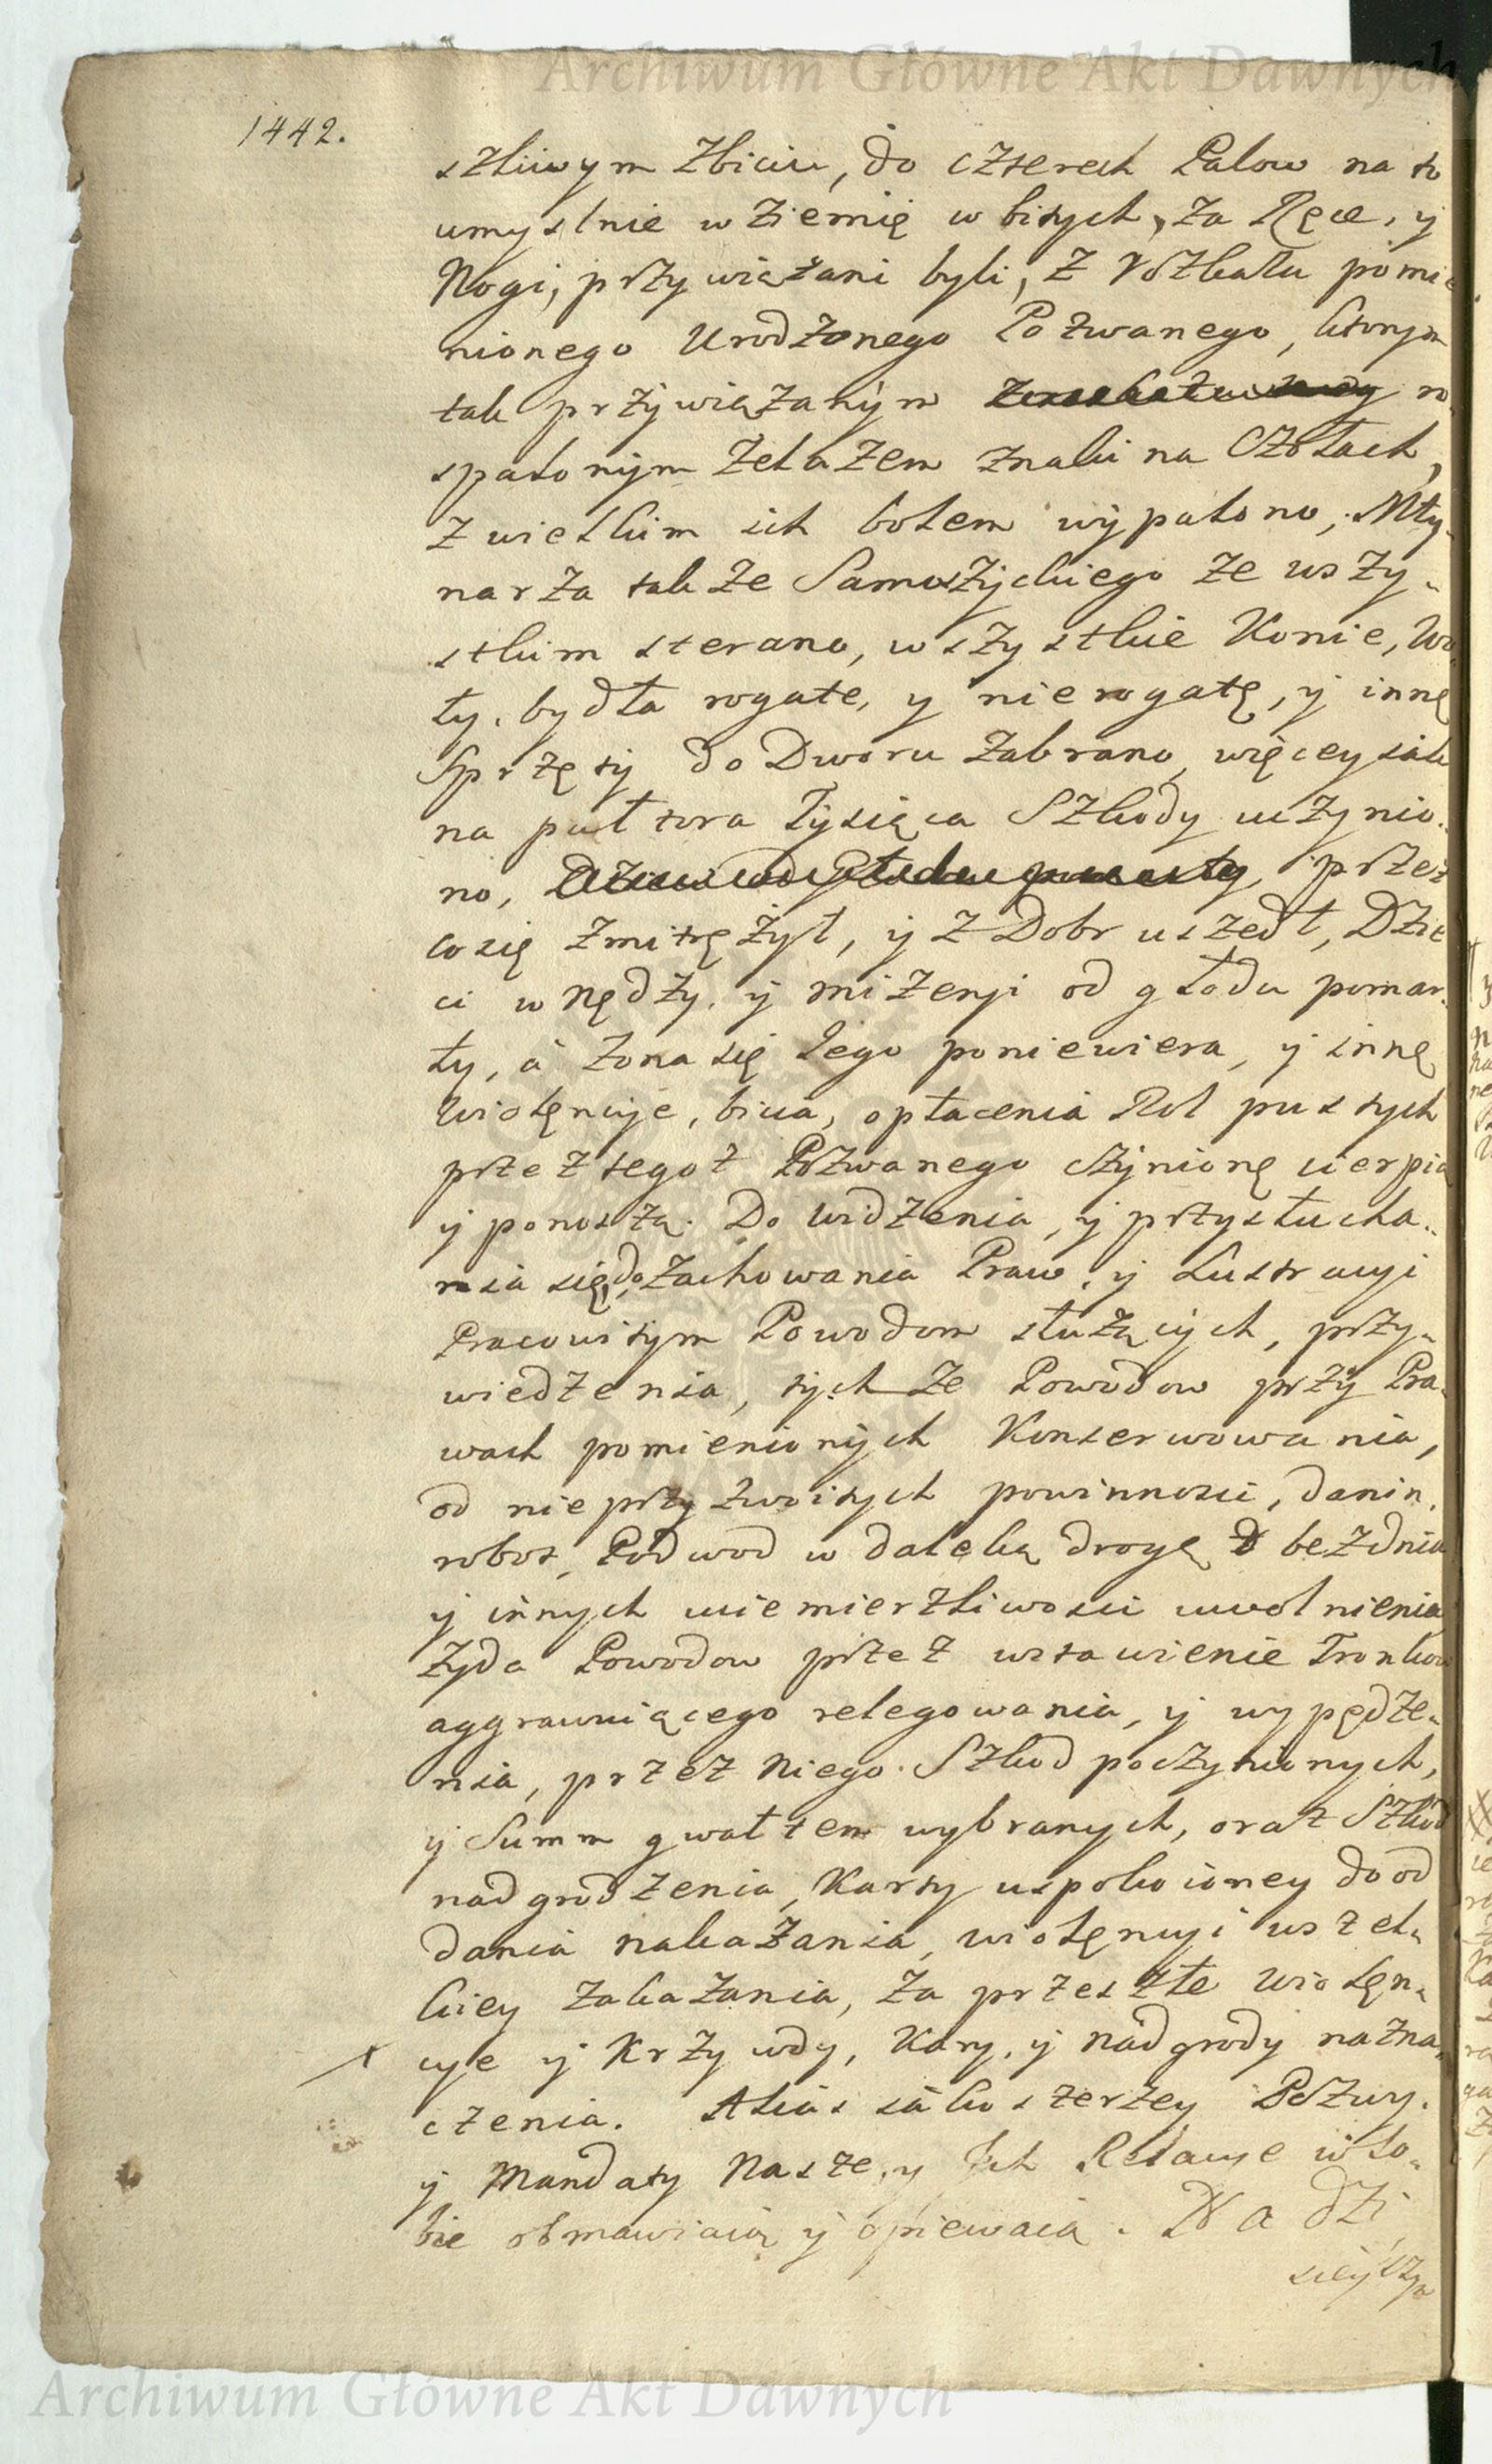 Archiwum Główne Akt Dawnych
1442.
szliwym zbiciu, do czterech Palow na to
umyslnie w ziemię w bitych, za Ręce, y
Nogi, przywiązani byli, z rozkazu pomie
nionego Urodzonego Pozwanego, ktorym
tak przywiązanym ro
spalonym żelazem znaki na Czołach,
z wielkim ich bolem wypalono, Mły-
narza także Samoszyckiego ze wszy-
stkim sterano, wszystkie Konie, Wo
ły, bydła rogate, y nierogatę, y innę
Sprzęty do Dworu zabrano, więcey iak
na pułtora Tysiąca Szkody uczynio-
no, przez
co się zmitrężył, y z Dobr uszedł, Dzie
ci w Nędzy, y mizeryi od głodu pomar-
ły, á żona się Jego poniewiera, y innę
Wiolęncyje, bicia, opłacenia Rol pustych
przez tegoż Pozwanego czynionę cierpią
y ponoszą. Do widzenia, y przysłucha-
nia się, do zachowania Praw, y Lustracyi
Pracowitym Powodom służących, przy-
wiedzenia, tychże Powodow przy Pra-
wach pomienionych Konserwowania,
od nieprzyzwoitych powinnosci, danin,
robot, Podwod w dalęką drogę bez dnia
y innych niemierzliwosci uwolnienia
Żyda Powodow przez wstawienie Tronkow
aggrawuiącego relegowania, y wypędze-
nia, przez Niego Szkod poczynionych,
y Summ gwałtem wybranych, oraz Szkod
nadgrodzenia, Karty uspokoioney do od
dania nakazania, wiolęncyi wszel-
kiey zakazania, za przeszłe Wiolęn-
cye y Krzywdy, Kary, y nadgrody nazna-
czenia. Alias iako szerzey Pozwy,
y Mandaty Nasze, y Ich Relacye w So-
bie obmawiaią y opiewaią. Na dzi
sieyszym
Archiwum Główne Akt Dawnych